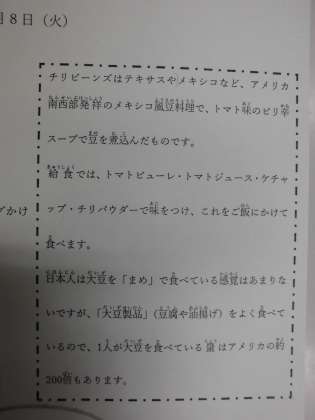 月8日（火）
チリビーンズはテキサスやメキシコなど、アメリカ
南西部発祥のメキシコ風豆料理で、トマト味のピリ辛
スープで豆を煮込んだものです。
給食では、トマトピューレ・トマトジュース・ケチャ
ップ・チリパウダーで味をつけ、これをご飯にかけて
食べます。
日本人は大豆を「まめ」で食べている感覚はあまりな
いですが、「大豆製品」(豆腐や油揚げ)をよく食べて
いるので、1人が大豆を食べている量はアメリカの約
200倍もあります。
かけ